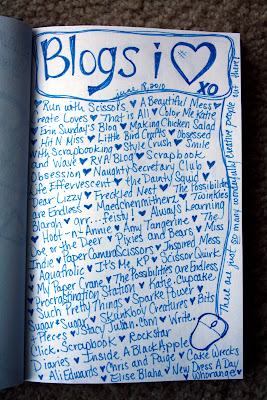 Blogs i ♡
xo
june 18, 2010
♥ Run with Scissors ♥ A Beautiful Mess
Create Loves ♥ That is All ♥ Color Me Katie
♥ Erin Sunday's Blog ♥ Making Chicken Salad
Hit N Kiss ♥ Little Bird Crafts ♥ Obsessed
with Scrapbooking ♥ Style Crush ♥ Smile
and Wave ♥ RVA Blog ♥ Scrapbook
Obsession ♥ Naughty Secretary Club ♥
Life Effervescent ♥ the Dainty Squid ♥
Dear Lizzy ♥ Freckled Nest ♥ The Possibilities
are Endless ♥ Maedchenmitherz ♥ Timeless
Blargh ♥ orr...feisty! ♥ Always Learning
♥ Hoot-n-Annie ♥ Amy Tangerine ♥ The
Doe or the Deer ♥ Pixies and Bears ♥ Miss
Indie ♥ Paper Camera Scissors ♥ Inspired Mess
Aquaholic ♥ It's Me, KP ♥ Scissor Quirk
My Paper Crane ♥ The Possibilities are Endless
Procrastination Station ♥ Katie.Cupcake.
Such Pretty Things ♥ Sparke Power ♥
Sugar*Sugar ♥ Skunkboy Creatures ♥ Bits
Pieces ♥ Stacy Julian.com ♥ Write.
Click. Scrapbook ♥ Rockstar
Diaries ♥ Inside A Black Apple
♥ Ali Edwards ♥ Chris and Paige ♥ Cake Wrecks
♥ Elise Blaha ♥ New Dress A Day
Whorange ♥
There are just SO many wonderfully creative people out there!